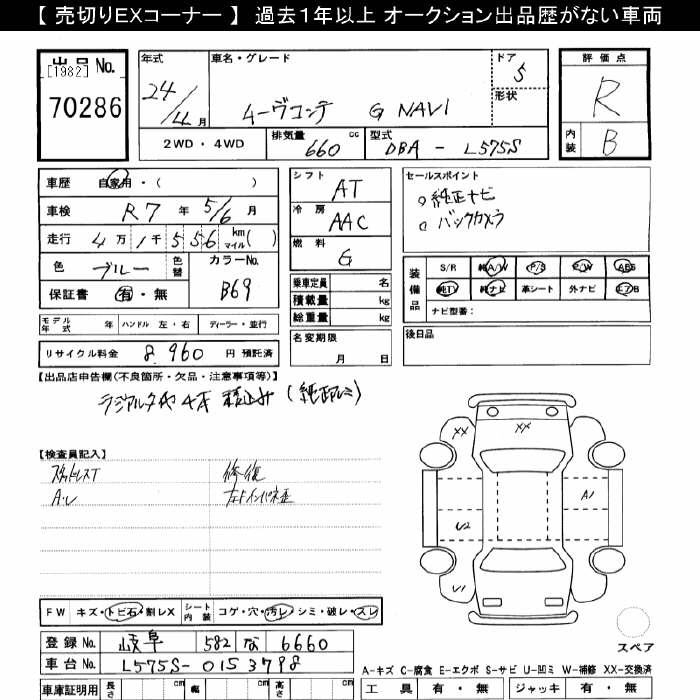 【 売切りEXコーナー 】 過去１年以上 オークション出品歴がない車両
出品 No.
[1982]
70286
年式
24/4月
車名・グレード
ムーヴコンテ G NAVI
ドア
5
形状
評価点
R
内装
B
2WD・4WD
排気量
660
cc
型式
DBA - L575S
車歴 自家用・( )
車検 R7 年 5/6 月
走行 4万 1千 556 km マイル( )
色 ブルー
色替
カラーNo.
B69
保証書 有・無
シフト
AT
冷房
AAC
燃料
G
乗車定員 名
積載量 kg
総重量 kg
セールスポイント
○ 純正ナビ
○ バックカメラ
装備品
S/R 純A/W P/S P/W ABS
純TV 純ナビ 革シート 外ナビ エアB
ナビ型番:
モデル年式 年 ハンドル 左・右 ディーラー・並行
リサイクル料金 8,960 円 預託済
名変期限
月 日
後日品
【出品店申告欄(不良箇所・欠品・注意事項等)】
ラジアルタイヤ 4本 積込み (純正アルミ)
【検査員記入】
スタッドレスT
修復
A・U
XX
XX
A1
U2
U1
FW キズ・トビ石・割レX
シート内装 コゲ・穴・汚レ・シミ・破レ・スレ
スペア
登録 No. 岐阜 582 な 6660
車台 No. L575S-0153798
A-キズ C-腐食 E-エクボ S-サビ U-凹ミ W-補修 XX-交換済
車庫証明用 長さ cm 幅 cm 高さ cm
工具 有・無 ジャッキ 有・無